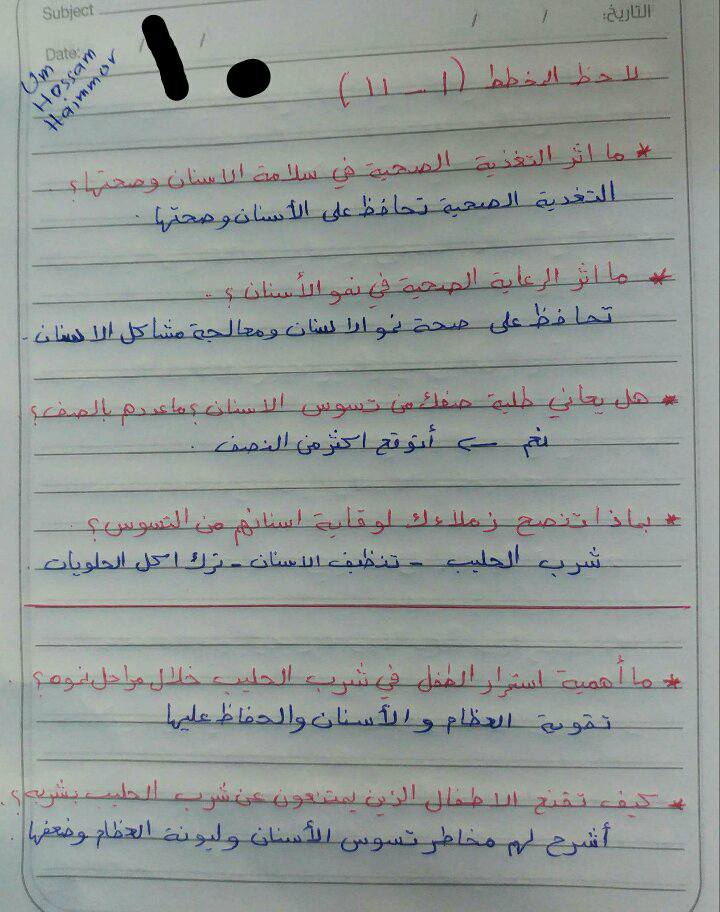 Subject
التاريخ:
Date:
Um
Hossam
Haimmor
١٠
لاحظ المخطط (١ - ١١)
* ما اثر التغذية الصحية في سلامة الاسنان وصحتها؟
التغدية الصحية تحافظ على الأسنان وصحتها .
* ما اثر الرعاية الصحية في نمو الأسنان ؟
تحافظ على صحة نمو الاسنان ومعالجة مشاكل الاسنان .
* هل يعاني طلبة صفك من تسوس الاسنان ؟ ماعددهم بالصف؟
نعم ← أتوقع اكثر من النصف .
* بماذا تنصح زملاءك لوقاية اسنانهم من التسوس؟
شرب الحليب - تنظيف الاسنان - ترك اكل الحلويات .
* ما أهمية استمرار الطفل في شرب الحليب خلال مراحل نموه؟
تقوية العظام و الأسنان والحفاظ عليها
* كيف تقنع الاطفال الذين يمتنعون عن شرب الحليب بشربه؟
أشرح لهم مخاطر تسوس الأسنان وليونة العظام وضعفها .